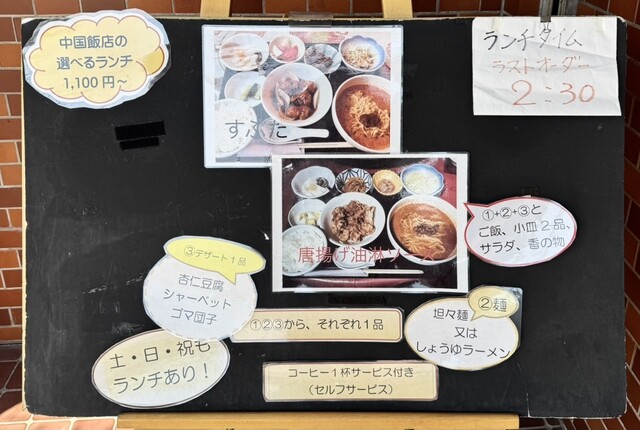 中国飯店の
選べるランチ
1,100円～
ランチタイム
ラストオーダー
2:30
すぶた
唐揚げ油淋ソース
①+②+③と
ご飯、小皿2品、
サラダ、香の物
③デザート1品
杏仁豆腐
シャーベット
ゴマ団子
②麺
坦々麺
又は
しょうゆラーメン
①②③から、それぞれ1品
土・日・祝も
ランチあり！
コーヒー1杯サービス付き
（セルフサービス）